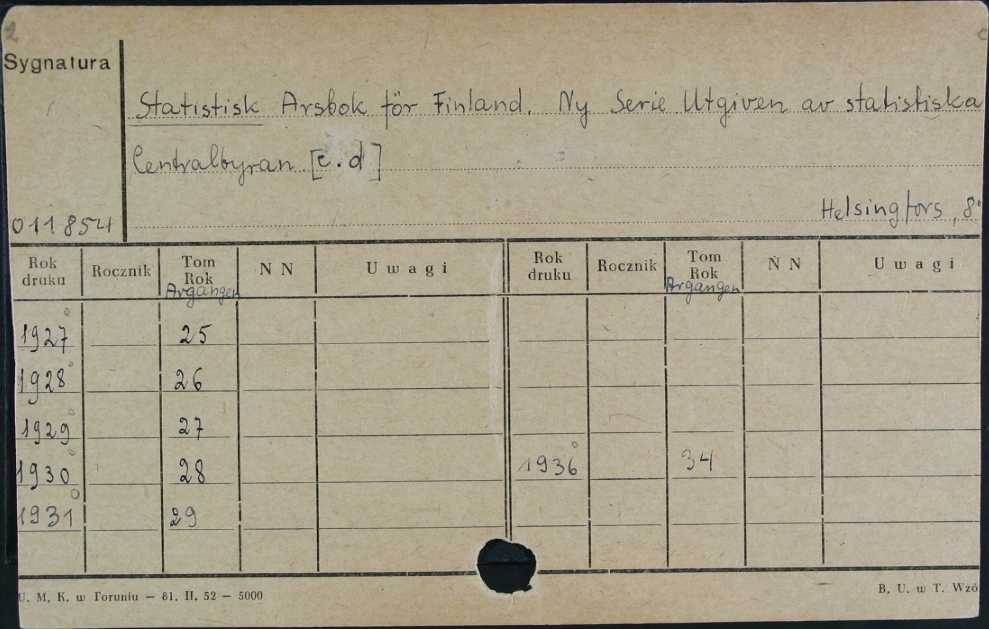 2
Sygnatura
Statistisk Arsbok för Finland. Ny Serie Utgiven av statistiska
Centralbyran [c.d]
Helsingfors, 8°
011854
Rok druku Rocznik Tom Rok N N Uwagi Rok druku Rocznik Tom Rok N N Uwagi
Argangen Argangen
1927 25
1928 26
1929 27
1930 28 1936 34
1931 29
U. M. K. w Toruniu — 81, II, 52 — 5000
B. U. w T. Wzó